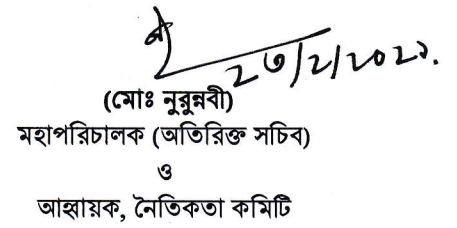 ২৩/২/২০২১.
(মোঃ নুরুন্নবী)
মহাপরিচালক (অতিরিক্ত সচিব)
ও
আহ্বায়ক, নৈতিকতা কমিটি